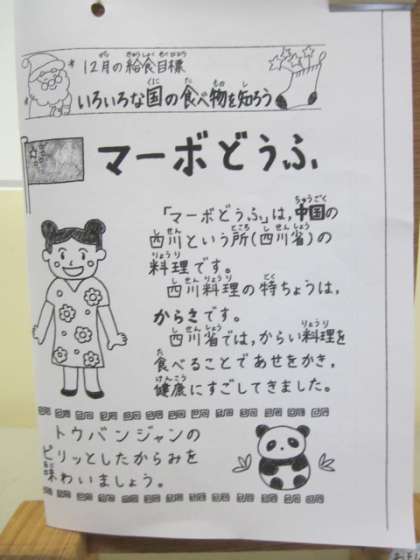 12月の給食目標
いろいろな国の食べ物を知ろう
マーボどうふ
「マーボどうふ」は、中国の
四川という所(四川省)の
料理です。
四川料理の特ちょうは、
からさです。
四川省では、からい料理を
食べることであせをかき、
健康にすごしてきました。
トウバンジャンの
ピリッとしたからみを
味わいましょう。